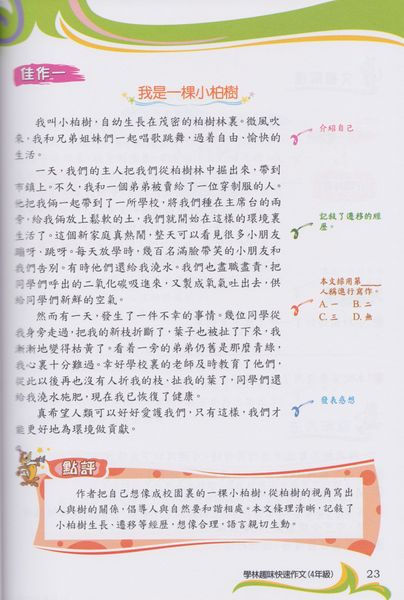 佳作一
我是一棵小柏樹
我叫小柏樹，自幼生長在茂密的柏樹林裏。微風吹
來，我和兄弟姐妹們一起唱歌跳舞，過着自由、愉快的
生活。
介紹自己
一天，我們的主人把我們從柏樹林中掘出來，帶到
市鎮上。不久，我和一個弟弟被賣給了一位穿制服的人。
他把我倆一起帶到了一所學校，將我們種在主席台的兩
旁，給我倆放上鬆軟的土，我們就開始在這樣的環境裏
生活了。這個新家庭真熱鬧，整天可以看見很多小朋友
蹦呀，跳呀。每天放學時，幾百名滿臉帶笑的小朋友和
我們告別。有時他們還給我澆水。我們也盡職盡責，把
同學們呼出的二氧化碳吸進來，又製成氧氣吐出去，供
給同學們新鮮的空氣。
記敍了遷移的經
歷。
本文採用第
人稱進行寫作。
A. 一 B. 二
C. 三 D. 無
然而有一天，發生了一件不幸的事情。幾位同學從
我身旁走過，把我的新枝折斷了，葉子也被扯了下來，我
漸漸地變得枯黃了。看着一旁的弟弟仍舊是那麼青綠，
我心裏十分難過。幸好學校裏的老師及時教育了他們，
從此以後再也沒有人折我的枝，扯我的葉了，同學們還
給我澆水施肥，現在我已恢復了健康。
真希望人類可以好好愛護我們，只有這樣，我們才
能更好地為環境做貢獻。
發表感想
點評
作者把自己想像成校園裏的一棵小柏樹，從柏樹的視角寫出
人與樹的關係，倡導人與自然要和諧相處。本文條理清晰，記敍了
小柏樹生長、遷移等經歷，想像合理，語言親切生動。
學林趣味快速作文(4年級)
23